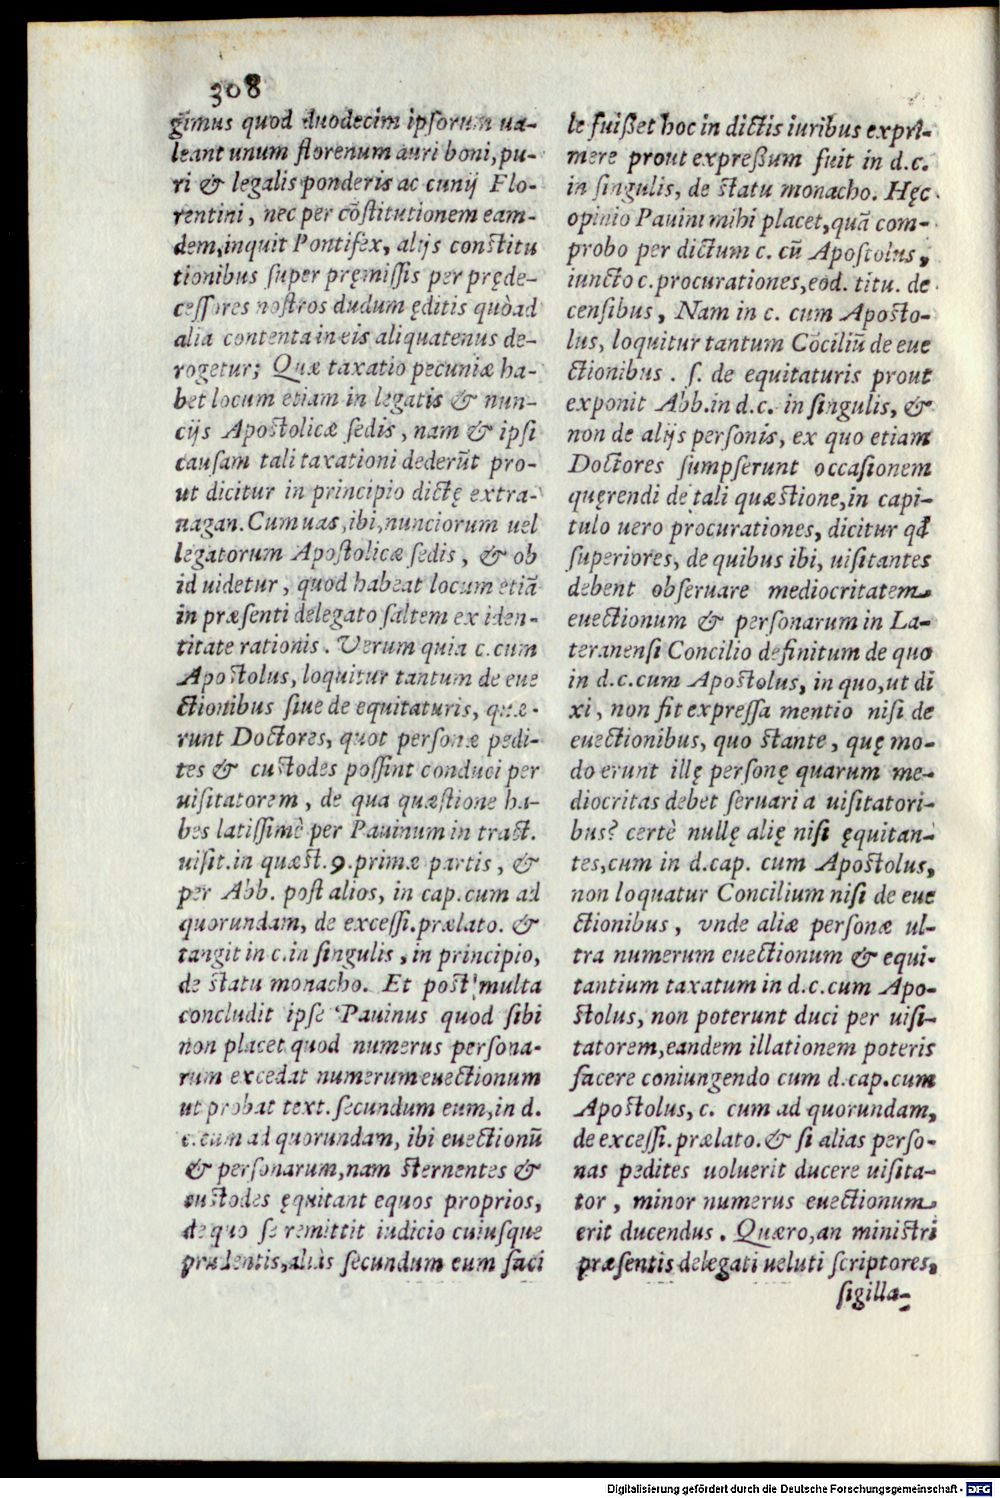 308
gimus quod duodecim ipsorum ua-
leant unum florenum auri boni, pu-
ri & legalis ponderis ac cunij Flo-
rentini, nec per cōstitutionem eam-
dem, inquit Pontifex, alijs constitu
tionibus super pręmissis per pręde-
cessores nostros dudum ęditis quòad
alia contenta in eis aliquatenus de-
rogetur; Quæ taxatio pecuniæ ha-
bet locum etiam in legatis & nun-
cijs Apostolicæ sedis, nam & ipsi
causam tali taxationi dederūt pro-
ut dicitur in principio dictę extra-
uagan. Cum uas, ibi, nunciorum uel
legatorum Apostolicæ sedis, & ob
id uidetur, quod habeat locum etiā
in præsenti delegato saltem ex iden-
titate rationis. Verum quia c. cum
Apostolus, loquitur tantum de eue
ctionibus siue de equitaturis, quæ-
runt Doctores, quot personæ pedi-
tes & custodes possint conduci per
uisitatorem, de qua quæstione ha-
bes latissimè per Pauinum in tract.
uisit. in quæst. 9. primæ partis, &
per Abb. post alios, in cap. cum ad
quorundam, de excessi. prælato. &
tangit in c. in singulis, in principio,
de statu monacho. Et post multa
concludit ipse Pauinus quod sibi
non placet quod numerus persona-
rum excedat numerum euectionum
ut probat text. secundum eum, in d.
c. cum ad quorundam, ibi euectionū
& personarum, nam sternentes &
custodes ęquitant equos proprios,
de quo se remittit iudicio cuiusque
prudentis, aliàs secundum eum faci
le fuißet hoc in dictis iuribus expri-
mere prout expreßum fuit in d.c.
in singulis, de statu monacho. Hęc
opinio Pauini mihi placet, quā com-
probo per dictum c. cū Apostolus,
iuncto c. procurationes, eod. titu. de
censibus, Nam in c. cum Aposto-
lus, loquitur tantum Cōciliū de eue
ctionibus. s. de equitaturis prout
exponit Abb. in d.c. in singulis, &
non de alijs personis, ex quo etiam
Doctores sumpserunt occasionem
quęrendi de tali quæstione, in capi-
tulo uero procurationes, dicitur qđ
superiores, de quibus ibi, uisitantes
debent obseruare mediocritatem
euectionum & personarum in La-
teranensi Concilio definitum de quo
in d.c. cum Apostolus, in quo, ut di
xi, non fit expressa mentio nisi de
euectionibus, quo stante, quę mo-
do erunt illę personę quarum me-
diocritas debet seruari a uisitatori-
bus? certè nullę alię nisi ęquitan-
tes, cum in d.cap. cum Apostolus,
non loquatur Concilium nisi de eue
ctionibus, vnde aliæ personæ ul-
tra numerum euectionum & equi-
tantium taxatum in d.c. cum Apo-
stolus, non poterunt duci per uisi-
tatorem, eandem illationem poteris
facere coniungendo cum d.cap. cum
Apostolus, c. cum ad quorundam,
de excessi. prælato. & si alias perso-
nas pedites uoluerit ducere uisita-
tor, minor numerus euectionum
erit ducendus. Quæro, an ministri
præsentis delegati ueluti scriptores,
sigilla-
Digitalisierung gefördert durch die Deutsche Forschungsgemeinschaft - DFG